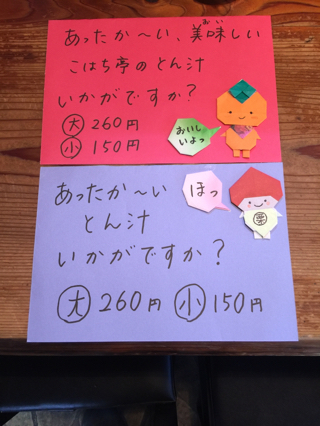 あったか〜い、美味しい
おい
こはち亭のとん汁
いかがですか?
大 260円
小 150円
おいしいよっ
あったか〜い
とん汁
いかがですか?
大 260円 小 150円
ほっ
栗